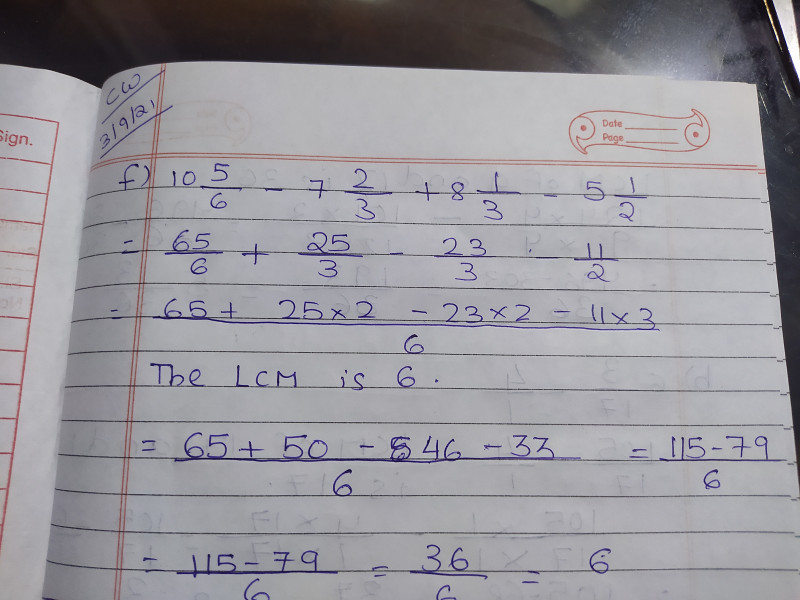 CW
3/9/21
Sign.
Date
Page
f) 10 5/6 - 7 2/3 + 8 1/3 - 5 1/2
= 65/6 + 25/3 - 23/3 - 11/2
= 65 + 25×2 - 23×2 - 11×3 / 6
The LCM is 6.
= 65 + 50 - 46 - 33 / 6 = 115-79 / 6
= 115-79 / 6 = 36/6 = 6